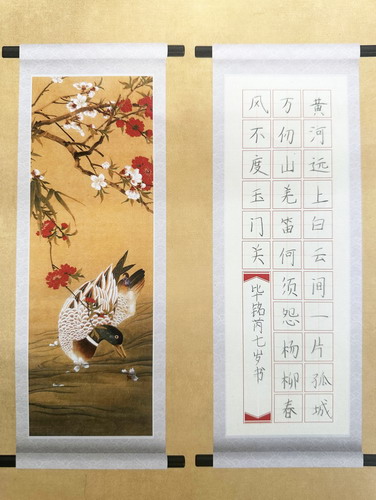 黄河远上白云间一片孤城
万仞山羌笛何须怨杨柳春
风不度玉门关
毕铭芮七岁书